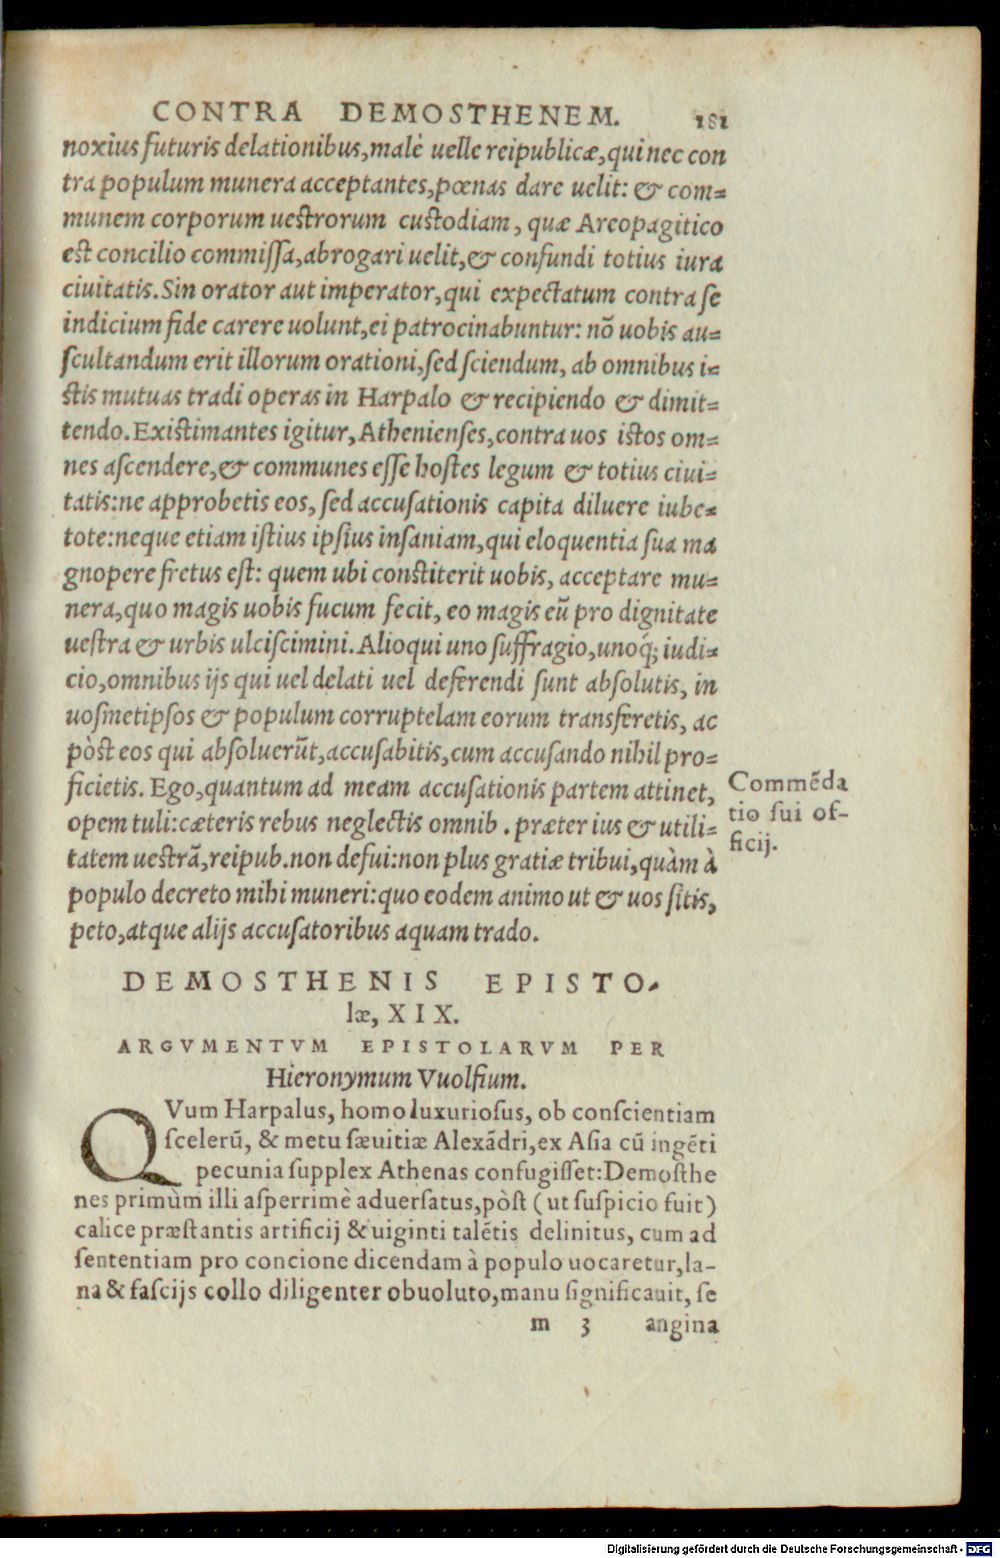 CONTRA DEMOSTHENEM. 181
noxius futuris delationibus, malè uelle reipublicæ, qui nec con
tra populum munera acceptantes, pœnas dare uelit: & com=
munem corporum uestrorum custodiam, quæ Areopagitico
est concilio commissa, abrogari uelit, & confundi totius iura
ciuitatis. Sin orator aut imperator, qui expectatum contra se
indicium fide carere uolunt, ei patrocinabuntur: nõ uobis au=
scultandum erit illorum orationi, sed sciendum, ab omnibus i=
stis mutuas tradi operas in Harpalo & recipiendo & dimit=
tendo. Existimantes igitur, Athenienses, contra uos istos om=
nes ascendere, & communes esse hostes legum & totius ciui=
tatis: ne approbetis eos, sed accusationis capita diluere iube=
tote: neque etiam istius ipsius insaniam, qui eloquentia sua ma
gnopere fretus est: quem ubi constiterit uobis, acceptare mu=
nera, quo magis uobis fucum fecit, eo magis eũ pro dignitate
uestra & urbis ulciscimini. Alioqui uno suffragio, unoq́; iudi=
cio, omnibus ijs qui uel delati uel deferendi sunt absolutis, in
uosmetipsos & populum corruptelam eorum transferetis, ac
pòst eos qui absoluerũt, accusabitis, cum accusando nihil pro=
ficietis. Ego, quantum ad meam accusationis partem attinet,
opem tuli: cæteris rebus neglectis omnib. præter ius & utili=
tatem uestrã, reipub. non defui: non plus gratiæ tribui, quàm à
populo decreto mihi muneri: quo eodem animo ut & uos sitis,
peto, atque alijs accusatoribus aquam trado.
Commẽda
tio sui of-
ficij.
DEMOSTHENIS EPISTO-
læ, XIX.
ARGVMENTVM EPISTOLARVM PER
Hieronymum Vuolfium.
QVum Harpalus, homo luxuriosus, ob conscientiam
scelerũ, & metu sæuitiæ Alexãdri, ex Asia cũ ingẽti
pecunia supplex Athenas confugisset: Demosthe
nes primùm illi asperrimè aduersatus, pòst (ut suspicio fuit)
calice præstantis artificij & uiginti talẽtis delinitus, cum ad
sententiam pro concione dicendam à populo uocaretur, la-
na & fascijs collo diligenter obuoluto, manu significauit, se
m 3 angina
Digitalisierung gefördert durch die Deutsche Forschungsgemeinschaft - DFG